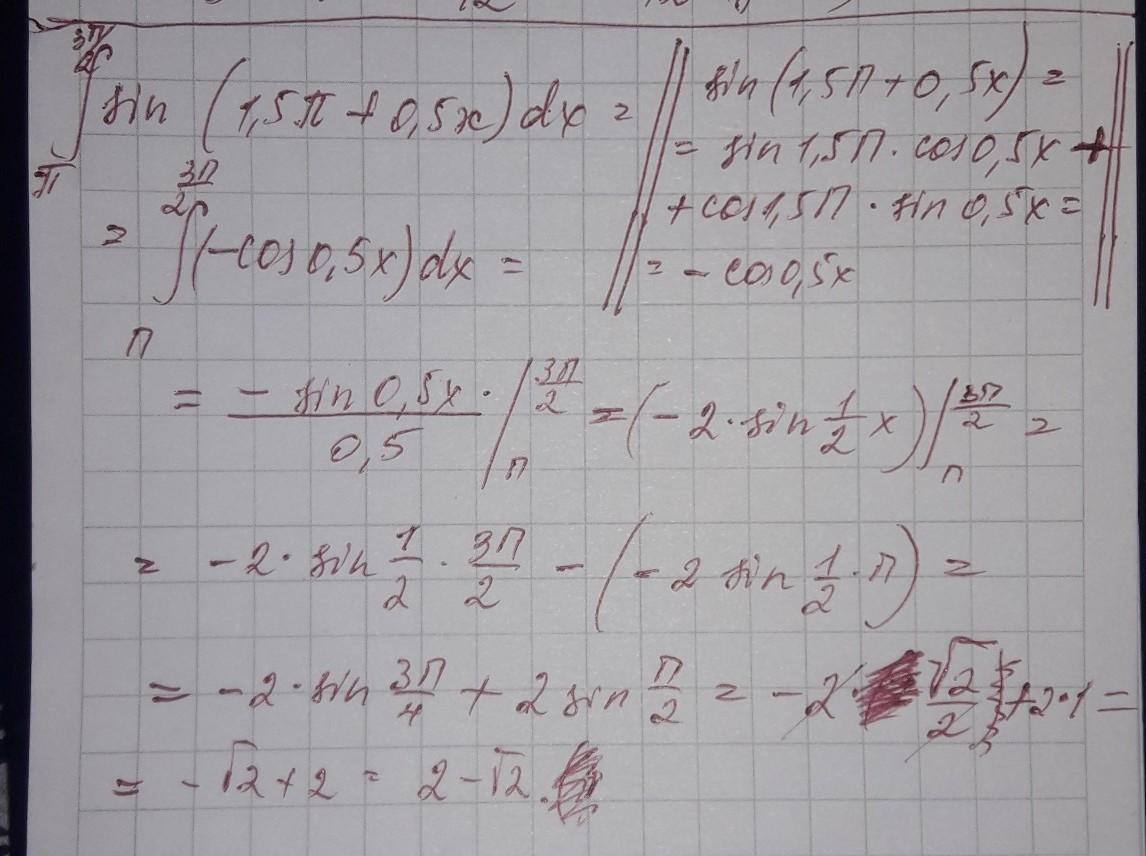 ∫_π^{3π/2} sin (1,5π + 0,5x) dx = || sin(1,5π + 0,5x) =
= sin 1,5π · cos 0,5x +
+ cos 1,5π · sin 0,5x =
= - cos 0,5x ||
= ∫_π^{3π/2} (-cos 0,5x) dx =
= \frac{- sin 0,5x}{0,5} · |_π^{3π/2} = (-2 · sin \frac{1}{2} x) |_π^{3π/2} =
= -2 · sin \frac{1}{2} · \frac{3π}{2} - (-2 sin \frac{1}{2} · π) =
= -2 · sin \frac{3π}{4} + 2 sin \frac{π}{2} = -2 · \frac{√2}{2} + 2 · 1 =
= -√2 + 2 = 2 - √2.